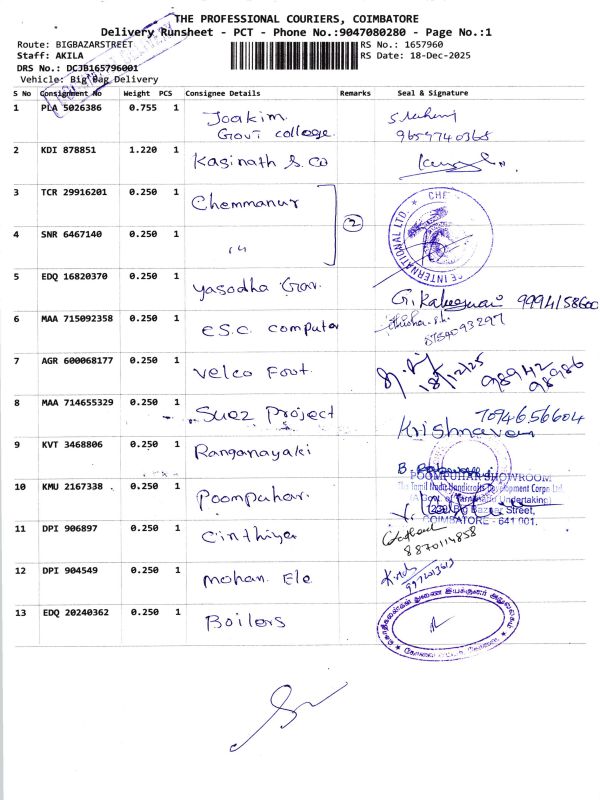 THE PROFESSIONAL COURIERS, COIMBATORE
Delivery Runsheet - PCT - Phone No.:9047080280 - Page No.:1
Route: BIGBAZARSTREET
RS No.: 1657960
Staff: AKILA
RS Date: 18-Dec-2025
DRS No.: DCJB165796001
Vehicle: Big Bag Delivery
S No Consignment No Weight PCS Consignee Details Remarks Seal & Signature
1 PLA 5026386 0.755 1 Joakim
Govt college
9659740365
2 KDI 878851 1.220 1 Kasinath S. Co
3 TCR 29916201 0.250 1 Chemmanur
2
4 SNR 6467140 0.250 1 "
5 EDQ 16820370 0.250 1 Yasodha Grav.
9994158600
6 MAA 715092358 0.250 1 e.s.c. computer
8754093297
7 AGR 600068177 0.250 1 Velco Foot.
18/12/25 98942
98986
8 MAA 714655329 0.250 1 Suez Project
Krishnaven
9 KVT 3468806 0.250 1 Ranganayaki
10 KMU 2167338 0.250 1 Poompuhar.
POOMPUHAR SHOWROOM
The Tamil Nadu Handicrafts Development Corpn Ltd
(A Govt. of Tamilnadu Undertaking)
Big Bazaar Street,
COIMBATORE - 641 001.
11 DPI 906897 0.250 1 Cinthiya
8870114858
12 DPI 904549 0.250 1 mohan. Ele
13 EDQ 20240362 0.250 1 Boilers